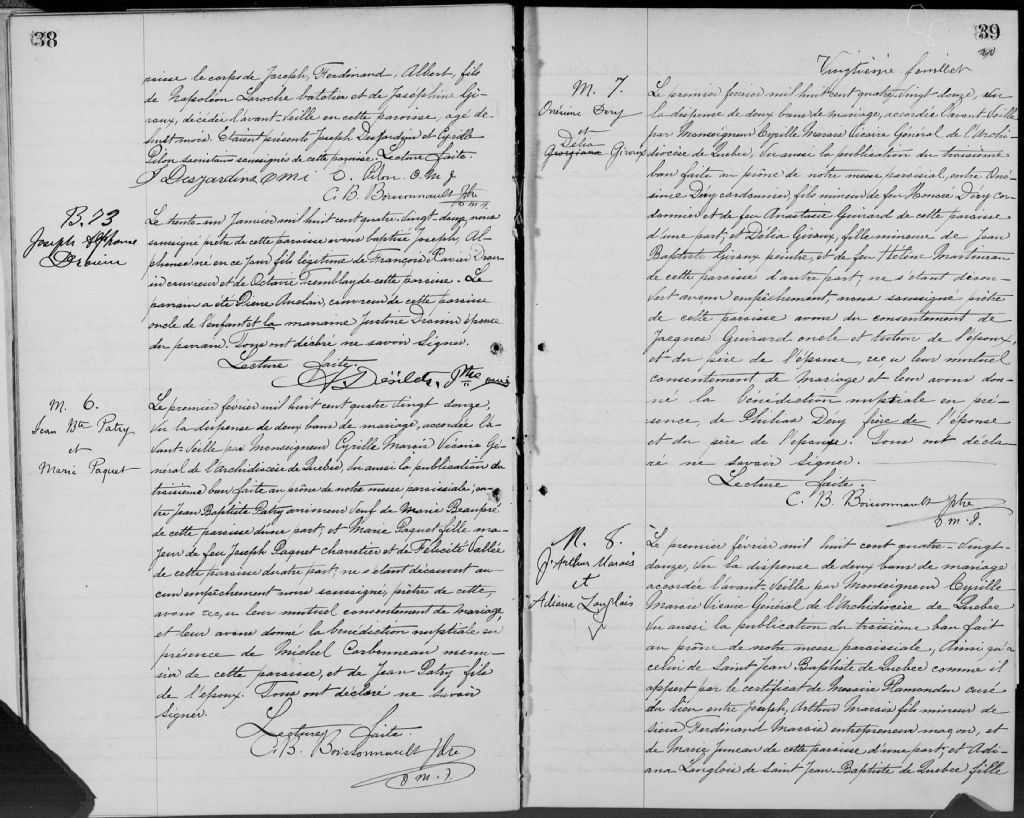 38
roisse le corps de Joseph, Ferdinand, Albert, fils
de Napoléon Laroche batelier et de Joséphine Gi-
roux, décédé l'avant-veille en cette paroisse, agé de
huit mois. Etaient présents Joseph Desjardins et Cyrille
Pilon sacristain soussignés de cette paroisse. Lecture faite.
J Desjardins O M I C. Pilon O. M. J.
C. B. Boissonnault Ptre
O M. J.
B. 23
Joseph Alphonse
Drouin
Le trente-un Janvier mil huit cent quatre-vingt-douze, nous
soussigné prêtre de cette paroisse avons baptisé Joseph, Al-
phonse né en ce jour fils légitime de François Xavier Drou-
in couvreur et de Octavie Tremblay de cette paroisse. Le
parrain a été Pierre Anclair, couvreur de cette paroisse
oncle de l'enfant et la marraine Justine Drouin épouse
du parrain. Tous ont déclaré ne savoir signer.
Lecture faite
Désilets, Ptre
M. 6.
Jean Bte Patry
et
Marie Paquet
Le premier février mil huit cent quatre vingt douze,
Vu la dispense de deux bans de mariage, accordée l'a-
vant-veille par Monseigneur Cyrille Marois Vicaire Gé-
néral de l'Archidiocèse de Québec, Vu aussi la publication du
troisième ban faite au prône de notre messe paroissiale, en-
tre Jean Baptiste Patry arrimeur veuf de Marie Beaupré
de cette paroisse d'une part, et Marie Paquet fille ma-
jeur de feu Joseph Paquet charretier et de Félicité Vallée
de cette paroisse d'autre part, ne s'étant découvert au-
cun empêchement nous soussigné, prêtre de cette,
avons reçu leur mutuel consentement de mariage,
et leur avons donné la bénédiction nuptiale en
présence de Michel Carbonneau menui-
sier de cette paroisse, et de Jean Patry fils
de l'époux. Tous ont déclaré ne savoir
signer.
Lecture faite.
C. B. Boissonnault Ptre
O M. J.
39
Vingtième feuillet
M. 7.
Onésime Dery
et
Délia
Georgiana Giroux
Le premier février mil huit cent quatre vingt douze, vu
la dispense de deux bans de mariage, accordée l'avant-veille
par Monseigneur Cyrille Marois Vicaire Général de l'Archi-
diocèse de Québec, Vu aussi la publication du troisième
ban faite au prône de notre messe paroissial, entre Oné-
sime Déry cordonnier, fils mineur de feu Honoré Déry cor-
donnier et de feu Anastasie Guirard de cette paroisse
d'une part, et Délia Giroux, fille mineure de Jean
Baptiste Giroux peintre, et de feu Hélène Martineau
de cette paroisse d'autre part, ne s'étant décou-
vert aucun empêchement, nous soussigné prêtre
de cette paroisse avons du consentement de
Jacques Guirard oncle et tuteur de l'époux,
et du père de l'épouse, reçu leur mutuel
consentement de Mariage et leur avons don-
né la bénédiction nuptiale en pré-
sence, de Philias Déry frère de l'épouse
et du père de l'épouse. Tous ont décla-
ré ne savoir signer.
Lecture faite.
C. B. Boissonnault Ptre
O M. J.
M. 8.
J. Arthur Marois
et
Adiana Langlois
Le premier février mil huit cent quatre-vingt-
douze, Vu la dispense de deux bans de mariage
accordée l'avant veille par Monseigneur Cyrille
Marois Vicaire Général de l'Archidiocèse de Québec
Vu aussi la publication du troisième ban fait
au prône de notre messe paroissiale, Ainsi qu'à
celui de Saint Jean Baptiste de Québec comme il
appert par le certificat de Messire Plamondon curé
du lieu entre Joseph, Arthur Marois fils mineur de
sieur Ferdinand Marois entrepreneur maçon, et
de Marie Juneau de cette paroisse d'une part, et Adi-
ana Langlois de Saint Jean-Baptiste de Québec fille